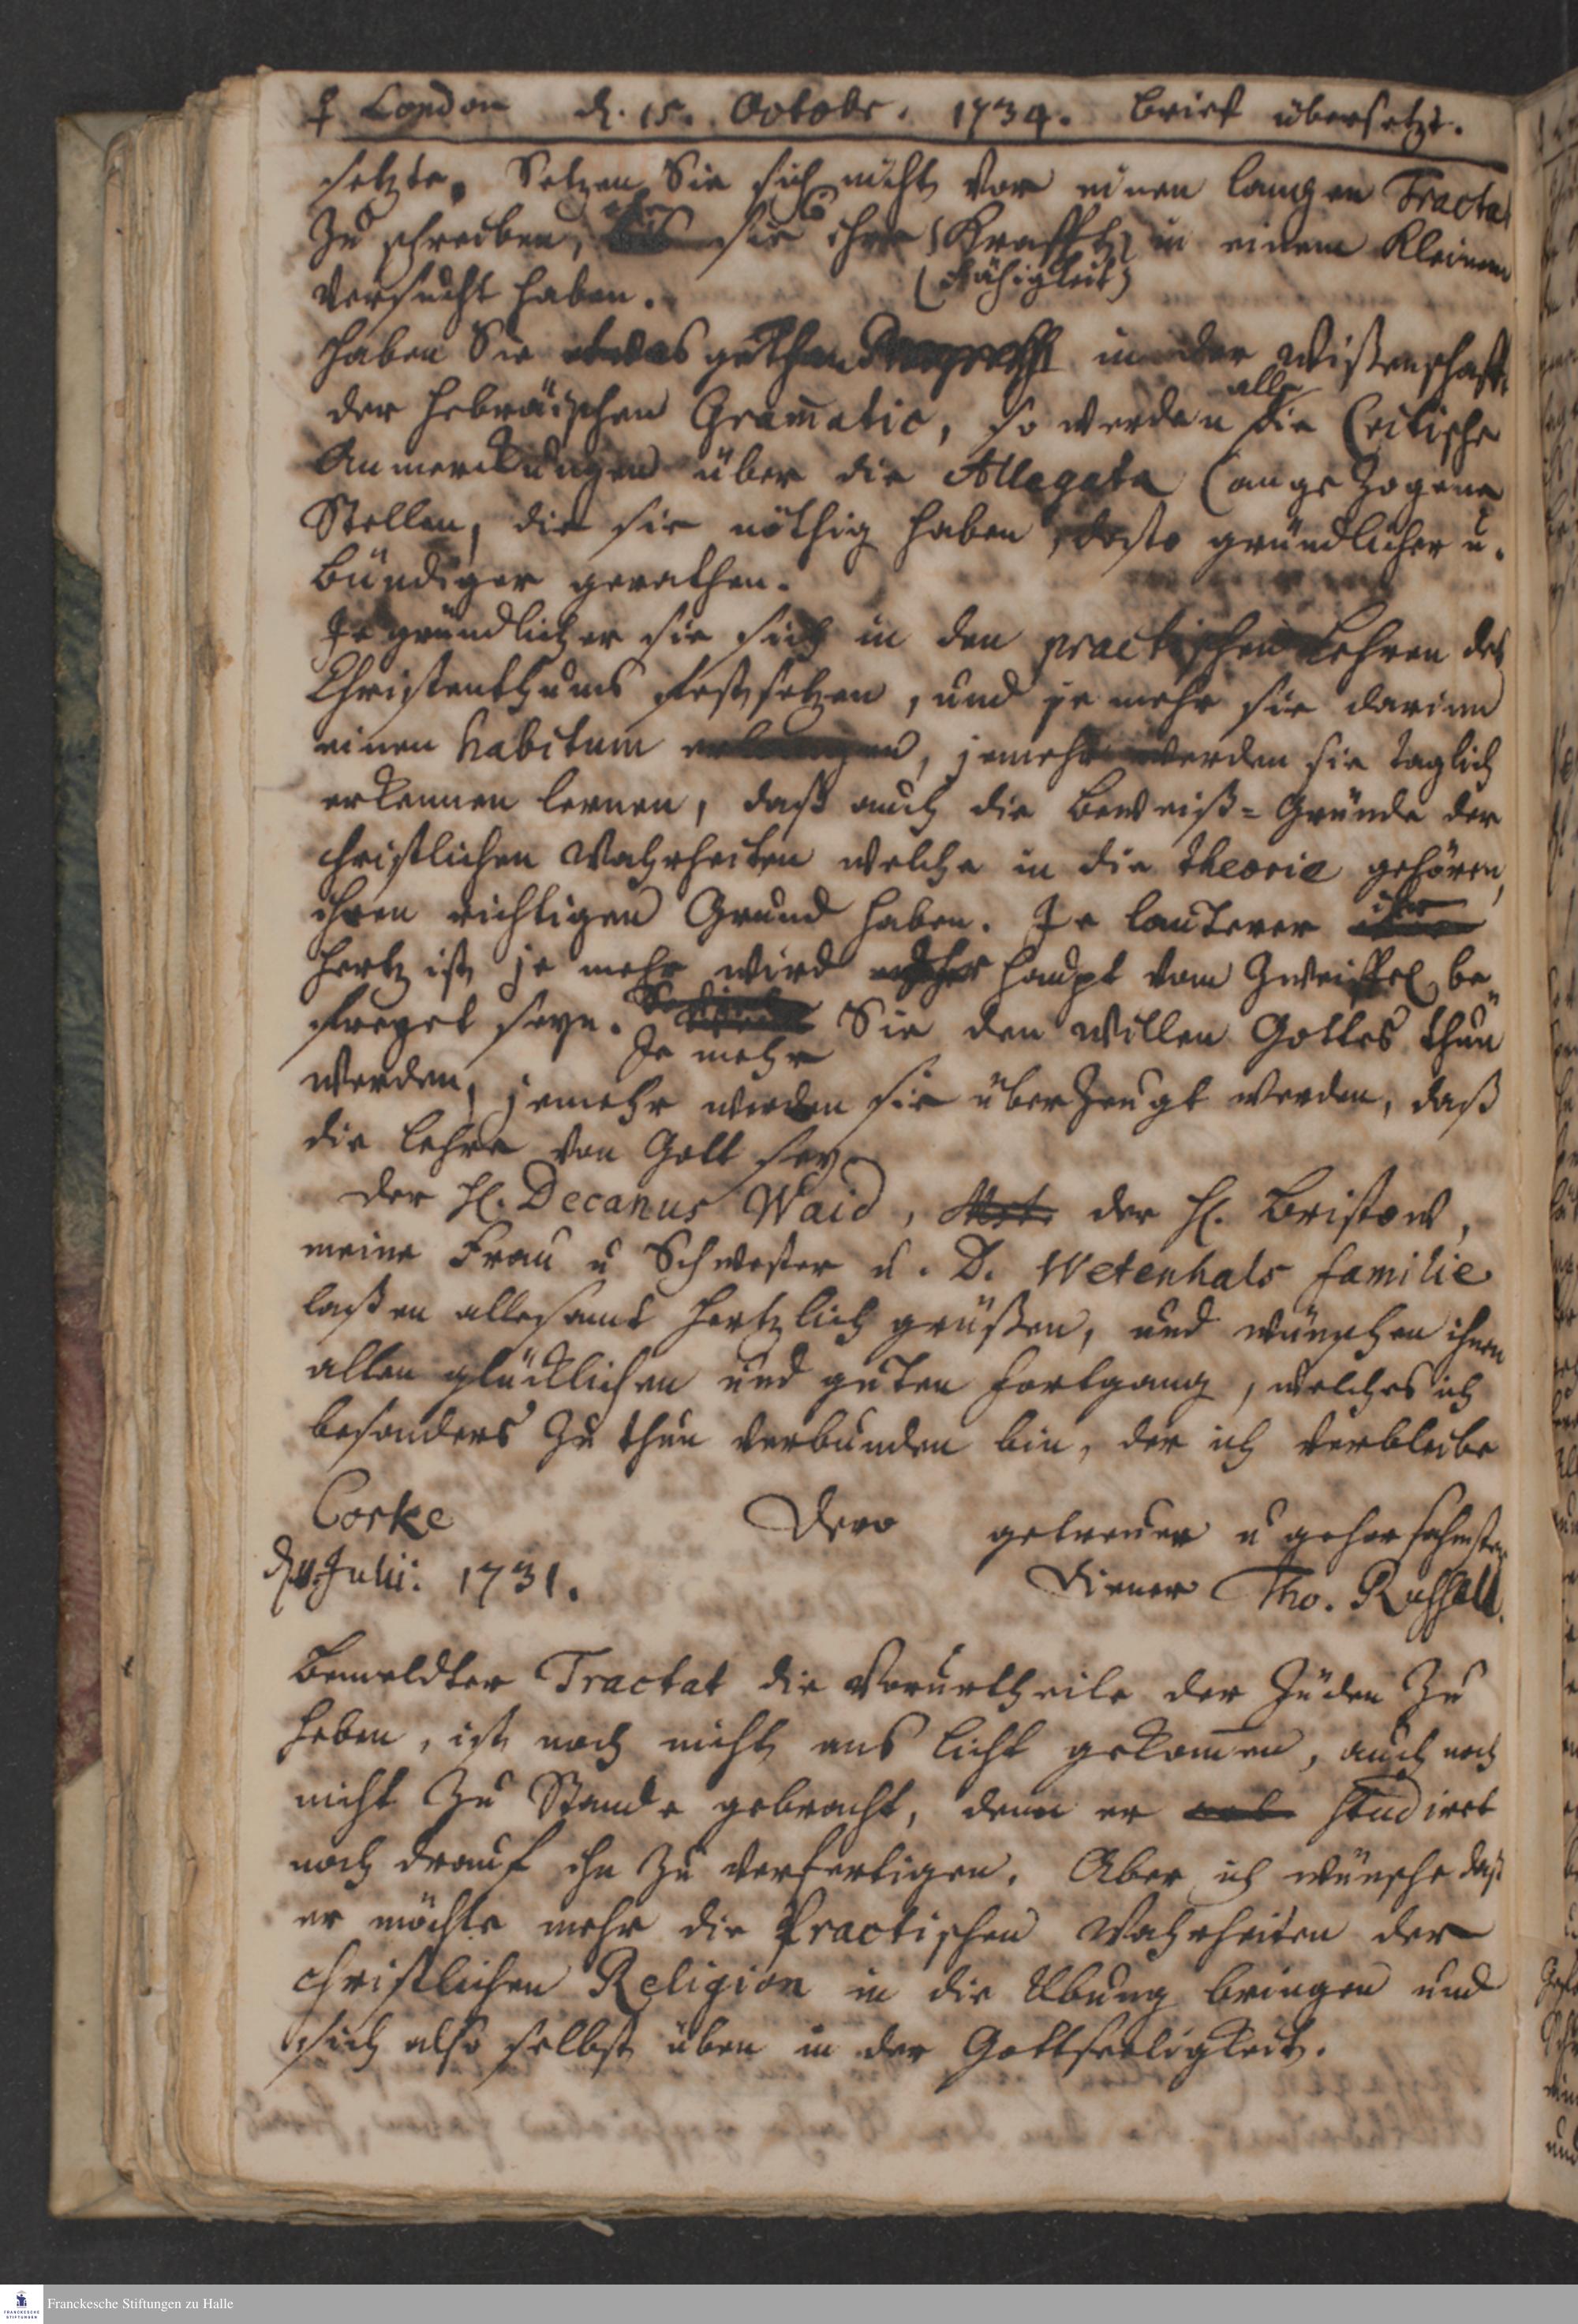 ♀ London d. 15. Octobr. 1734. Brief übersetzt.
setzte. Setzen Sie sich nicht vor einen langen Tractat
zu schreiben, sie ihre (Kraffts) in einem Kleinen
(Fähigkeit)
versucht haben.
Haben Sie etwas gethan in der Wißenschafft
alle
der Hebräischen Gram̄atic, so werden die Critische
Anmerckungen über die Allegata (angezogene
Stellen, die sie nöthig haben, desto gründlicher u.
bündiger gerathen.
Je gründlicher sie sich in den practischen Lehren des
Christenthums festsetzen, und je mehr sie darinn
einen habitum erlangen, jemehr werden sie täglich
erkennen lernen, daß auch die Beweiß-Gründe der
christlichen Wahrheiten welche in die theorie gehören,
ihren richtigen Grund haben. Je lauterer ihr
Hertz ist je mehr wird Haupt vom Zweiffel be-
freyet seyn. Sie den Willen Gottes thun
Je mehr
werden, jemehr werden sie überzeugt werden, daß
die Lehre von Gott sey.
Der H. Decanus Waid, der H. Bristow,
meine Frau u Schwester u. D. Wetenhals familie
laßen allesamt hertzlich grüßen, und wünschen ihnen
allen glücklichen und guten Fortgang, welches ich
besonders zu thun verbunden bin, der ich verbleibe
Corke Dero getreuer u gehorsahmster
Julii: 1731. Diener Tho. Russell.
Bemeldter Tractat die Vorurtheile der Jüden zu
heben, ist noch nicht ans Licht gekom̄en, auch noch
nicht zu Stande gebracht, denn er studiret
noch drauf ihn zu verfertigen. Aber ich wünsche daß
er möchte mehr die Practischen Wahrheiten der
christlichen Religion in die Übung bringen und
sich also selbst üben in der Gottseeligkeit.
FRANCKESCHE STIFTUNGEN
Franckesche Stiftungen zu Halle